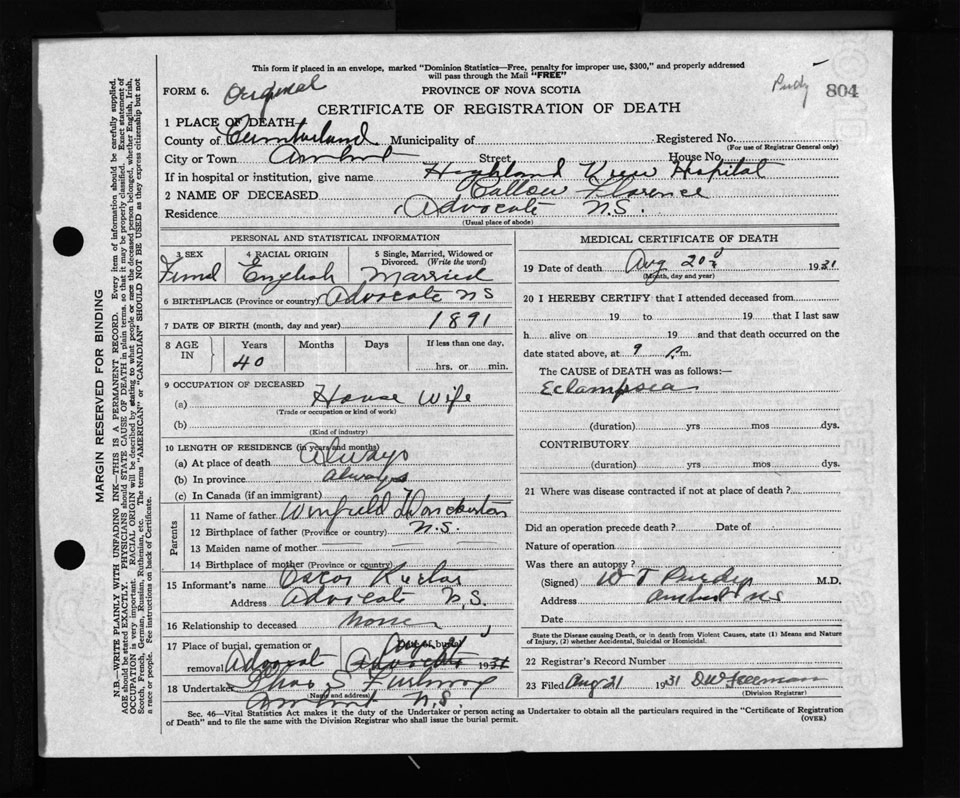 This form if placed in an envelope, marked "Dominion Statistics—Free, penalty for improper use, $300," and properly addressed
will pass through the Mail "FREE"
FORM 6. Original
PROVINCE OF NOVA SCOTIA
Purdy 804
CERTIFICATE OF REGISTRATION OF DEATH
1 PLACE OF DEATH
County of Cumberland Municipality of Registered No.
(For use of Registrar General only)
City or Town Amherst Street House No.
If in hospital or institution, give name Highland View Hospital
2 NAME OF DECEASED Callow Florence
Residence Advocate N.S.
(Usual place of abode)
PERSONAL AND STATISTICAL INFORMATION
3 SEX 4 RACIAL ORIGIN 5 Single, Married, Widowed or
Divorced. (Write the word)
English Married
6 BIRTHPLACE (Province or country) Advocate N S
7 DATE OF BIRTH (month, day and year) 1891
8 AGE IN Years Months Days If less than one day,
40 hrs. or min.
9 OCCUPATION OF DECEASED
(a) House Wife
(Trade or occupation or kind of work)
(b)
(Kind of industry)
10 LENGTH OF RESIDENCE (in years and months)
(a) At place of death Always
(b) In province always
(c) In Canada (if an immigrant)
Parents
11 Name of father Winfield
12 Birthplace of father (Province or country) N.S.
13 Maiden name of mother
14 Birthplace of mother (Province or country)
15 Informant's name Oscar
Address Advocate N.S.
16 Relationship to deceased none
17 Place of burial, cremation or removal Date of burial
Advocate Advocate 1931
18 Undertaker
(Name and address)
Amherst N.S.
MEDICAL CERTIFICATE OF DEATH
19 Date of death Aug 20 1931
(Month, day and year)
20 I HEREBY CERTIFY that I attended deceased from
19 to 19 that I last saw
h alive on 19 and that death occurred on the
date stated above, at 9 P.m.
The CAUSE of DEATH was as follows:—
Eclampsea
(duration) yrs mos dys.
CONTRIBUTORY
(duration) yrs mos dys.
21 Where was disease contracted if not at place of death?
Did an operation precede death? Date of
Nature of operation
Was there an autopsy?
(Signed) W T Purdy M.D.
Address Amherst N S
Date
State the Disease causing Death, or in death from Violent Causes, state (1) Means and Nature
of Injury, (2) whether Accidental, Suicidal or Homicidal.
22 Registrar's Record Number
23 Filed Aug 21 1931
(Division Registrar)
Sec. 46—Vital Statistics Act makes it the duty of the Undertaker or person acting as Undertaker to obtain all the particulars required in the "Certificate of Registration
of Death" and to file the same with the Division Registrar who shall issue the burial permit.
(OVER)
MARGIN RESERVED FOR BINDING
N.B.—WRITE PLAINLY WITH UNFADING INK—THIS IS A PERMANENT RECORD. Every item of information should be carefully supplied.
AGE should be stated EXACTLY. PHYSICIANS should STATE CAUSE OF DEATH in plain terms, so that it may be properly classified. Exact statement of
OCCUPATION is very important. RACIAL ORIGIN will be described by stating to what people or race the deceased person belonged, whether English, Irish,
Scotch, French, German, Russian, Ruthenian, etc. The terms "AMERICAN" or "CANADIAN" SHOULD NOT BE USED as they express citizenship but not
a race or people. See instructions on back of Certificate.